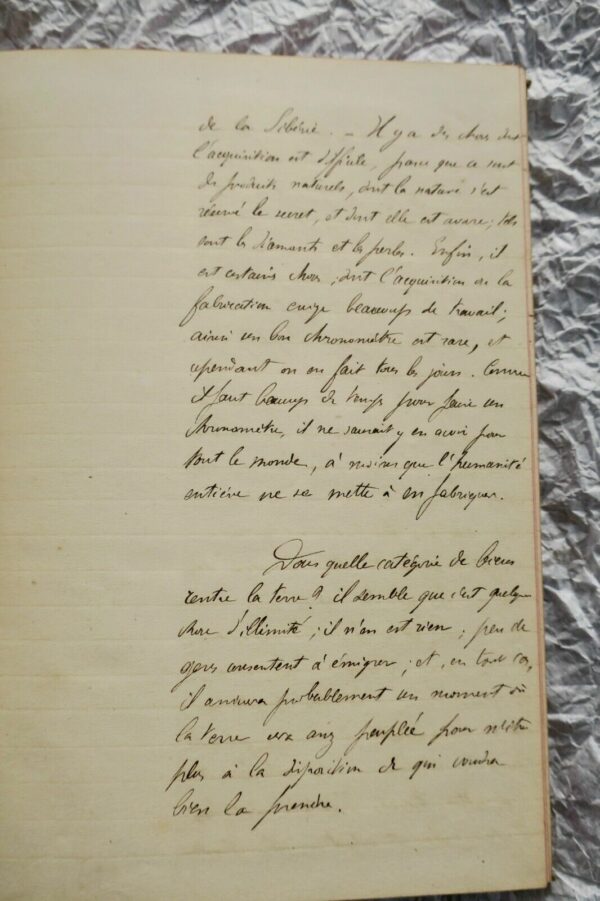 de la Sibérie. - Il y a des choses dont
l'acquisition est difficile, parce que ce sont
des produits naturels, dont la nature s'est
réservé le secret, et dont elle est avare; tels
sont les diamants et les perles. Enfin, il
est certaines choses, dont l'acquisition ou la
fabrication exige beaucoup de travail;
ainsi un bon chronomètre est rare, et
cependant on en fait tous les jours. Comme
il faut beaucoup de temps pour faire un
chronomètre, il ne saurait y en avoir pour
tout le monde, à moins que l'humanité
entière ne se mette à en fabriquer.
Dans quelle catégorie de biens
rentre la terre? il semble que c'est quelque
chose d'illimité; il n'en est rien; peu de
gens consentent à émigrer; et, en tout cas,
il arrivera probablement un moment où
la terre sera assez peuplée pour n'être
plus à la disposition de qui voudra
bien la prendre.